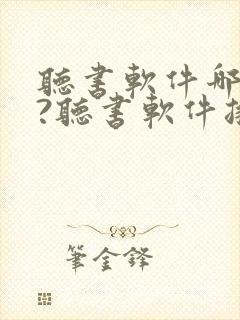 聽書軟件哪
?聽書軟件推
筆金鋒